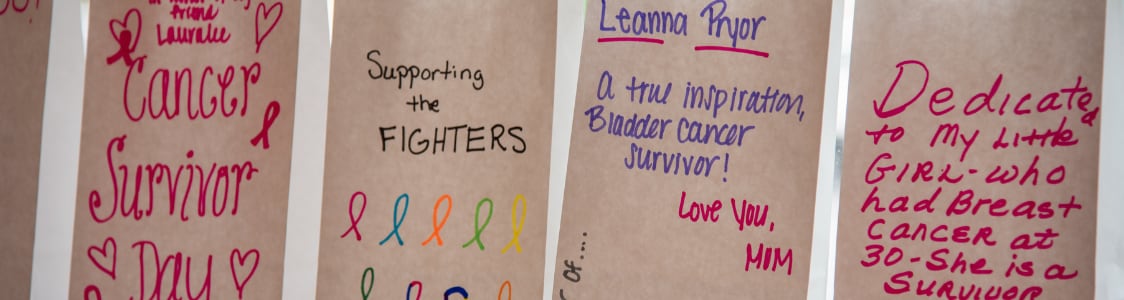 friend
Lauralee
Cancer
Survivor
Day
Supporting
the
FIGHTERS
Leanna Pryor
A true inspiration,
Bladder cancer
survivor!
Love You,
MOM
OF....
Dedicated
to My Little
GIRL-who
had Breast
CANCER at
30-She is a
SURVIVOR